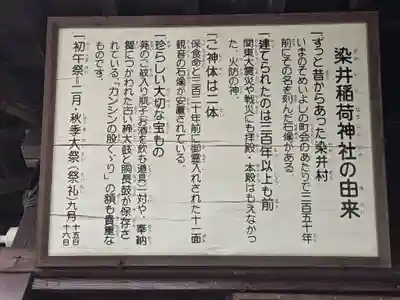 染井稲荷神社の由来
一ずっと昔からあった染井村
いまのそめいよしの町会のあたりで三百五十年
前にその名を刻んだ石像がある。
一建てられたのは三百年以上も前
関東大震災や戦災にも拝殿・本殿はもえなかっ
た、火防の神。
一ご神体は二体
保食命と三百二十年前に御霊入れされた十一面
観音の石像が安置されている。
一珍らしい大切な宝もの
葵のご紋入り瓶子(お酒を飲む道具)一対や、奉納
につかわれた古い締太鼓と胴長鼓が保存さ
れている。「カンシンの股くゞり」の額も貴重な
ものです。
一初午祭=二月・秋季大祭(祭礼)九月十五日
十六日